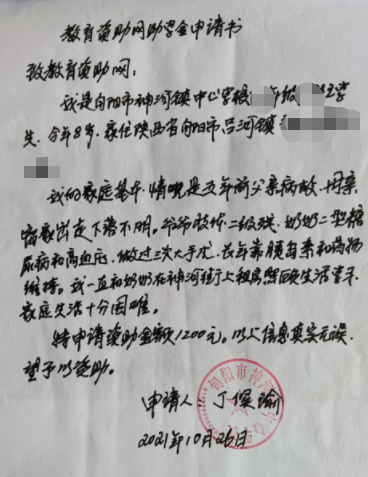 教育资助网助学金申请书
致教育资助网：
我是旬阳市神河镇中心学校 年级 学
生，今年8岁，家住陕西省旬阳市吕河镇
我的家庭基本情况是五年前父亲病故，母亲
离家出走下落不明。爷爷肢体二级残，奶奶二型糖
尿病和高血压，做过三次大手术，长年靠胰岛素和药物
维持。我一直和奶奶在神河街上租房照顾生活学习
家庭生活十分困难。
特申请资助金额1200元。以上信息真实无误，
望予以资助。
旬阳市神河
申请人：丁俊瑜
2021年10月26日